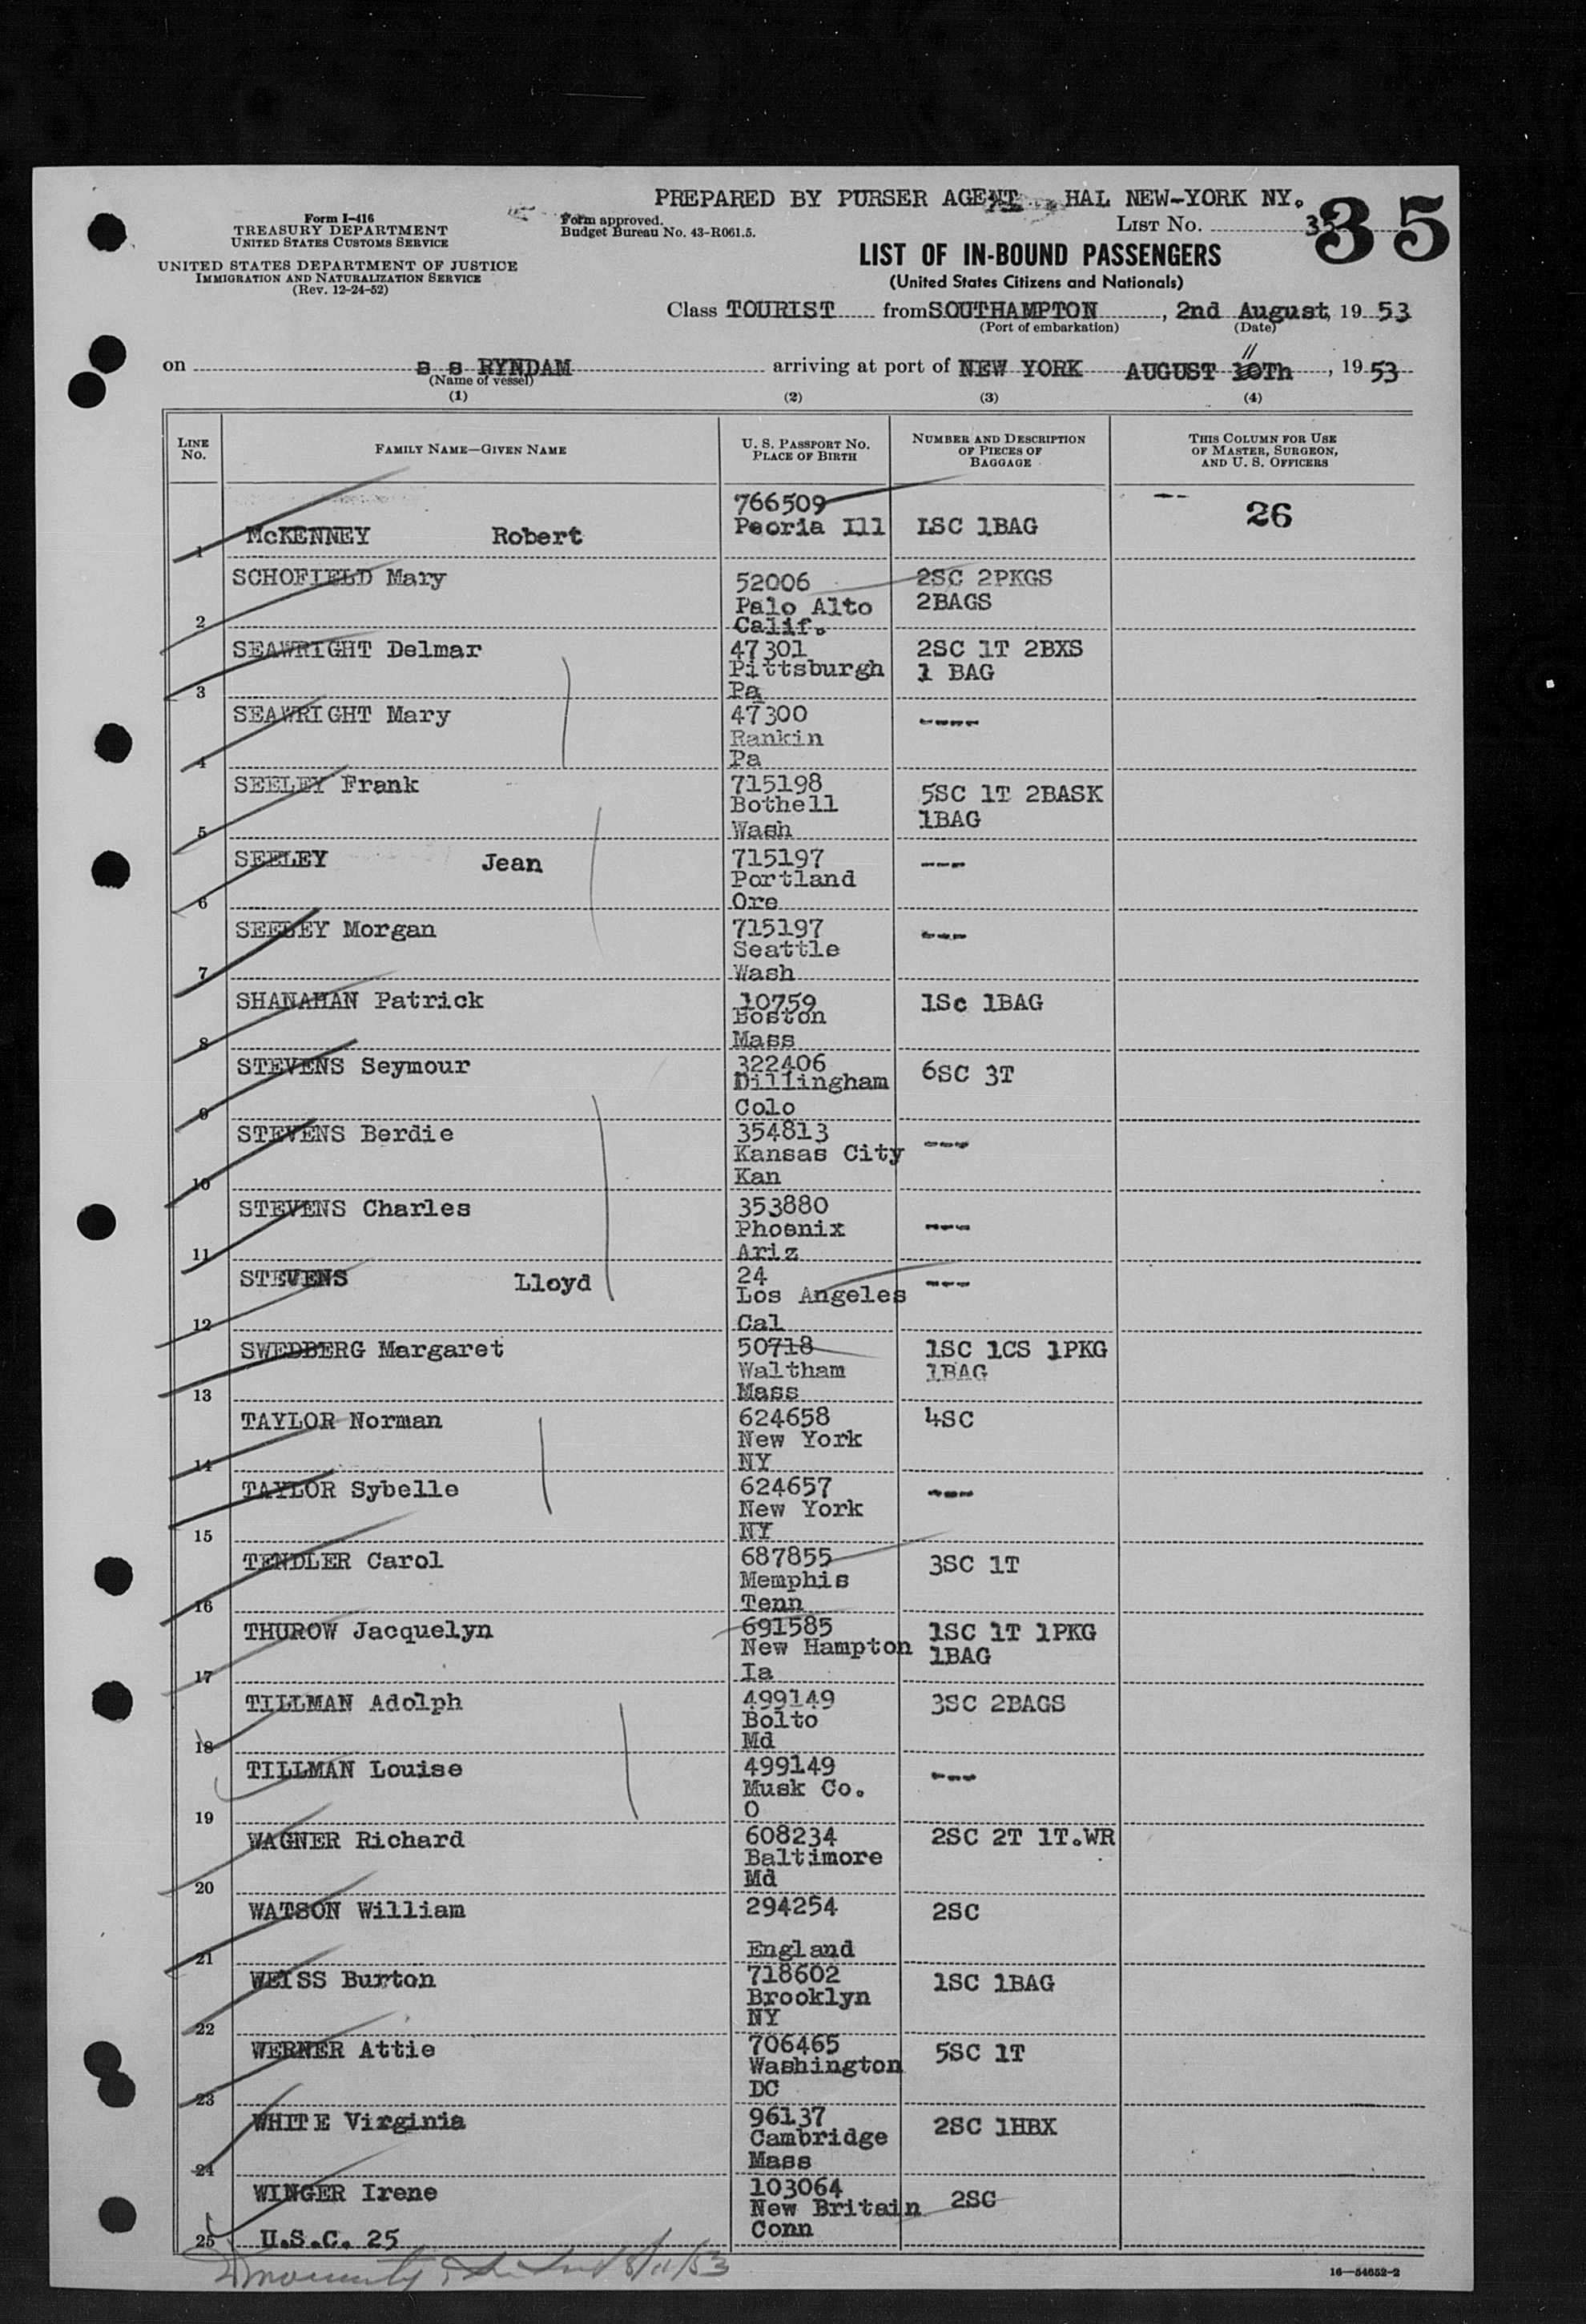 PREPARED BY PURSER AGENT HAL NEW-YORK NY.
Form I-416
TREASURY DEPARTMENT
UNITED STATES CUSTOMS SERVICE
UNITED STATES DEPARTMENT OF JUSTICE
IMMIGRATION AND NATURALIZATION SERVICE
(Rev. 12-24-52)
Form approved.
Budget Bureau No. 43-R061.5.
LIST No. 35
35
LIST OF IN-BOUND PASSENGERS
(United States Citizens and Nationals)
Class TOURIST from SOUTHAMPTON, 2nd August, 1953
(Port of embarkation) (Date)
11
on s s RYNDAM arriving at port of NEW YORK AUGUST 10Th, 1953
(Name of vessel)
(1) (2) (3) (4)
LINE No.
FAMILY NAME—GIVEN NAME
U. S. PASSPORT NO.
PLACE OF BIRTH
NUMBER AND DESCRIPTION
OF PIECES OF
BAGGAGE
THIS COLUMN FOR USE
OF MASTER, SURGEON,
AND U. S. OFFICERS
766509 26
1 McKENNEY Robert Peoria Ill 1SC 1BAG
SCHOFIELD Mary 52006 2SC 2PKGS
Palo Alto 2BAGS
2 Calif.
SEAWRIGHT Delmar 47301 2SC 1T 2BXS
Pittsburgh 1 BAG
3 Pa
SEAWRIGHT Mary 47300 ----
Rankin
4 Pa
SEELEY Frank 715198 5SC 1T 2BASK
Bothell 1BAG
5 Wash
SEELEY Jean 715197 ---
Portland
6 Ore
SEELEY Morgan 715197 ---
Seattle
7 Wash
SHANAHAN Patrick 10759 1Sc 1BAG
Boston
8 Mass
STEVENS Seymour 322406 6SC 3T
Dillingham
9 Colo
STEVENS Berdie 354813 ---
Kansas City
10 Kan
STEVENS Charles 353880 ---
Phoenix
11 Ariz
STEVENS Lloyd 24 ---
Los Angeles
12 Cal
SWEDBERG Margaret 50718 1SC 1CS 1PKG
Waltham 1BAG
13 Mass
TAYLOR Norman 624658 4SC
New York
14 NY
TAYLOR Sybelle 624657 ---
New York
15 NY
TENDLER Carol 687855 3SC 1T
Memphis
16 Tenn
THUROW Jacquelyn 691585 1SC 1T 1PKG
New Hampton 1BAG
17 Ia
TILLMAN Adolph 499149 3SC 2BAGS
Bolto
18 Md
TILLMAN Louise 499149 ---
Musk Co.
19 O
WAGNER Richard 608234 2SC 2T 1T.WR
Baltimore
20 Md
WATSON William 294254 2SC
21 England
WEISS Burton 718602 1SC 1BAG
Brooklyn
22 NY
WERNER Attie 706465 5SC 1T
Washington
23 DC
WHITE Virginia 96137 2SC 1HBX
Cambridge
24 Mass
WINGER Irene 103064 2SC
New Britain
25 U.S.C. 25 Conn
8/11/53
16—54652-2